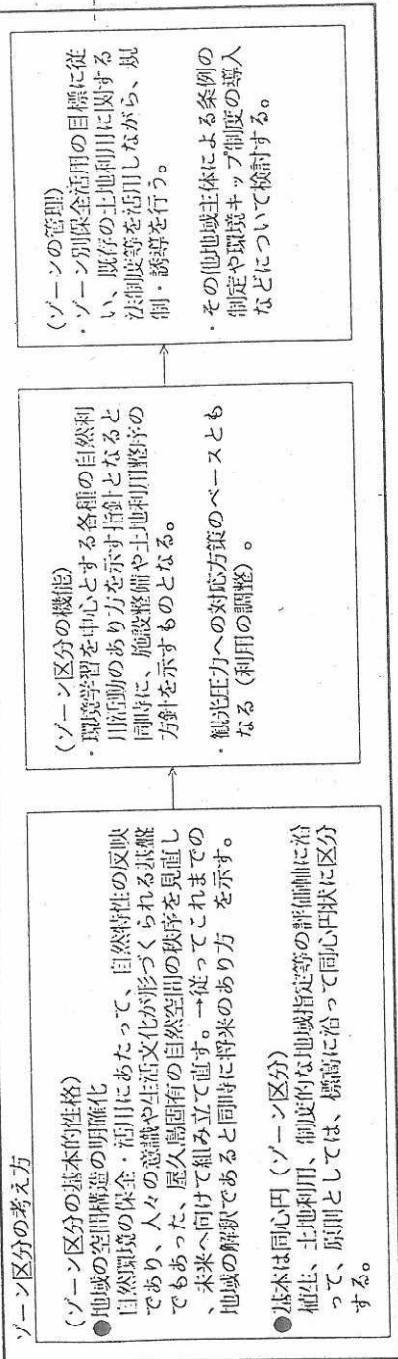 ゾーン区分の考え方
(ゾーン区分の基本的性格)
●地域の空間構造の明確化
自然環境の保全・活用にあたって、自然特性の反映
であり、人々の意識や生活文化が形づくられる基盤
でもあった、屋久島固有の自然空間の秩序を見直し
、未来へ向けて組み立て直す。→従ってこれまでの
地域の解釈であると同時に将来のあり方 を示す。
●基本は同心円(ゾーン区分)
植生、土地利用、制度的な地域指定等の評価軸に沿
って、原則としては、標高に沿って同心円状に区分
する。
(ゾーン区分の機能)
・環境学習を中心とする各種の自然利
用活動のあり方を示す指針となると
同時に、施設整備や土地利用整序の
方針を示すものとなる。
・観光圧力への対応方策のベースとも
なる(利用の調整)。
(ゾーンの管理)
・ゾーン別保全活用の目標に従
い、既存の土地利用に関する
法制度等を活用しながら、規
制・誘導を行う。
・その他地域主体による条例の
制定や環境キップ制度の導入
などについて検討する。